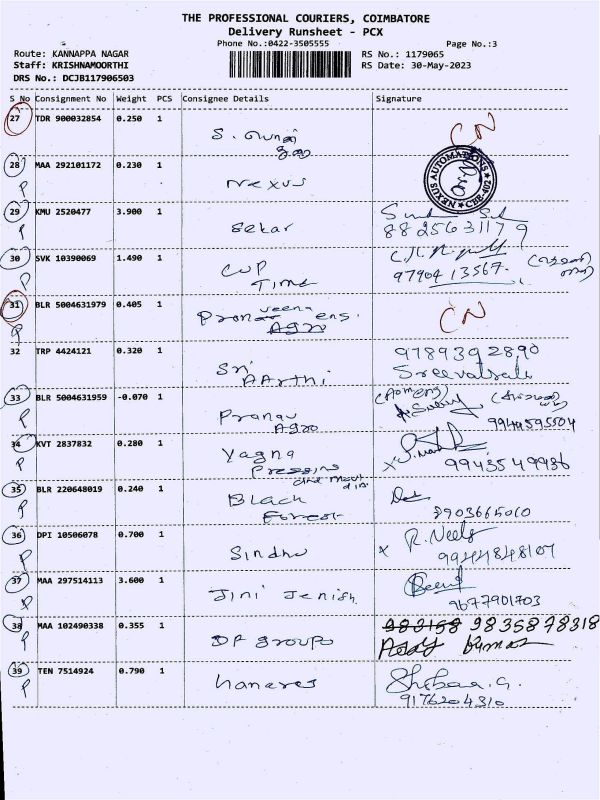 THE PROFESSIONAL COURIERS, COIMBATORE
Delivery Runsheet - PCX
Phone No.:0422-3505555 Page No.:3
Route: KANNAPPA NAGAR RS No.: 1179065
Staff: KRISHNAMOORTHI RS Date: 30-May-2023
DRS No.: DCJB117906503
S No Consignment No Weight PCS Consignee Details Signature
27 TDR 900032854 0.250 1
CN
28 MAA 292101172 0.230 1
P Nexus
NEXUS AUTOMATIONS CBE-
29 KMU 2520477 3.900 1
P Sekar 8825631179
30 SVK 10390069 1.490 1
P Cup
Time 9790413567.
31 BLR 5004631979 0.405 1
veena
Pranav ens.
Agro
CN
32 TRP 4424121 0.320 1 9789392890
Sri
AArthi Sreevatsali
33 BLR 5004631959 -0.070 1
P Pranav
Agro 9944595504
34 KVT 2837832 0.280 1
P Yagna
Pressing
X 9943549936
35 BLR 220648019 0.240 1
P Black
Forest 8903665010
36 DPI 10506078 0.700 1
P Sindhu
X R. Neels
9944848107
37 MAA 297514113 3.600 1
P Jini Jenish
9677901703
38 MAA 102490338 0.355 1 983158 9835878318
P DP Groups
Kumar
39 TEN 7514924 0.790 1
P Shobaa.G.
9176204310